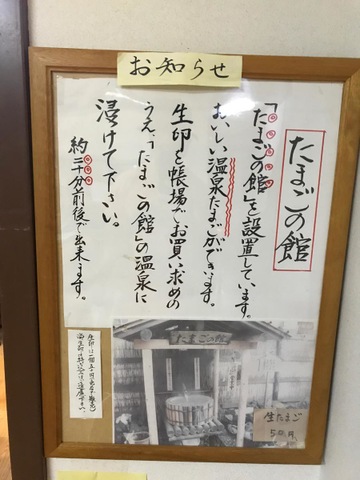 お知らせ
たまごの館
「たまごの館」を設置しています。
おいしい温泉たまごができます。
生卵を帳場でお買い求めの
うえ、「たまごの館」の温泉に
浸けて下さい。
約二十分前後で出来ます。
たまごの館
生たまご
50円